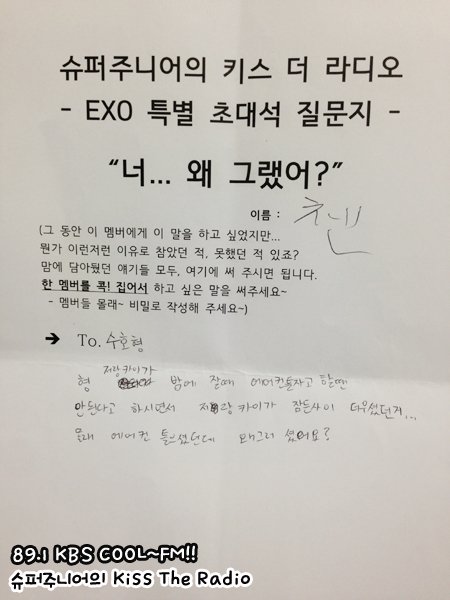 슈퍼주니어의 키스 더 라디오
- EXO 특별 초대석 질문지 -
“너... 왜 그랬어?”
이름 : 첸
(그 동안 이 멤버에게 이 말을 하고 싶었지만...
뭔가 이런저런 이유로 참았던 적, 못했던 적 있죠?
맘에 담아뒀던 얘기들 모두, 여기에 써 주시면 됩니다.
한 멤버를 콕! 집어서 하고 싶은 말을 써주세요~
- 멤버들 몰래~ 비밀로 작성해 주세요~)
→ To. 수호형
형 저랑 카이가 밤에 잘때 에어컨틀자고 할땐
안된다고 하시면서 저랑 카이가 잠든사이 더우셨던지...
몰래 에어컨 틀으셨던데 왜그러셨어요?
89.1 KBS COOL~FM!!
슈퍼주니어의 Kiss The Radio